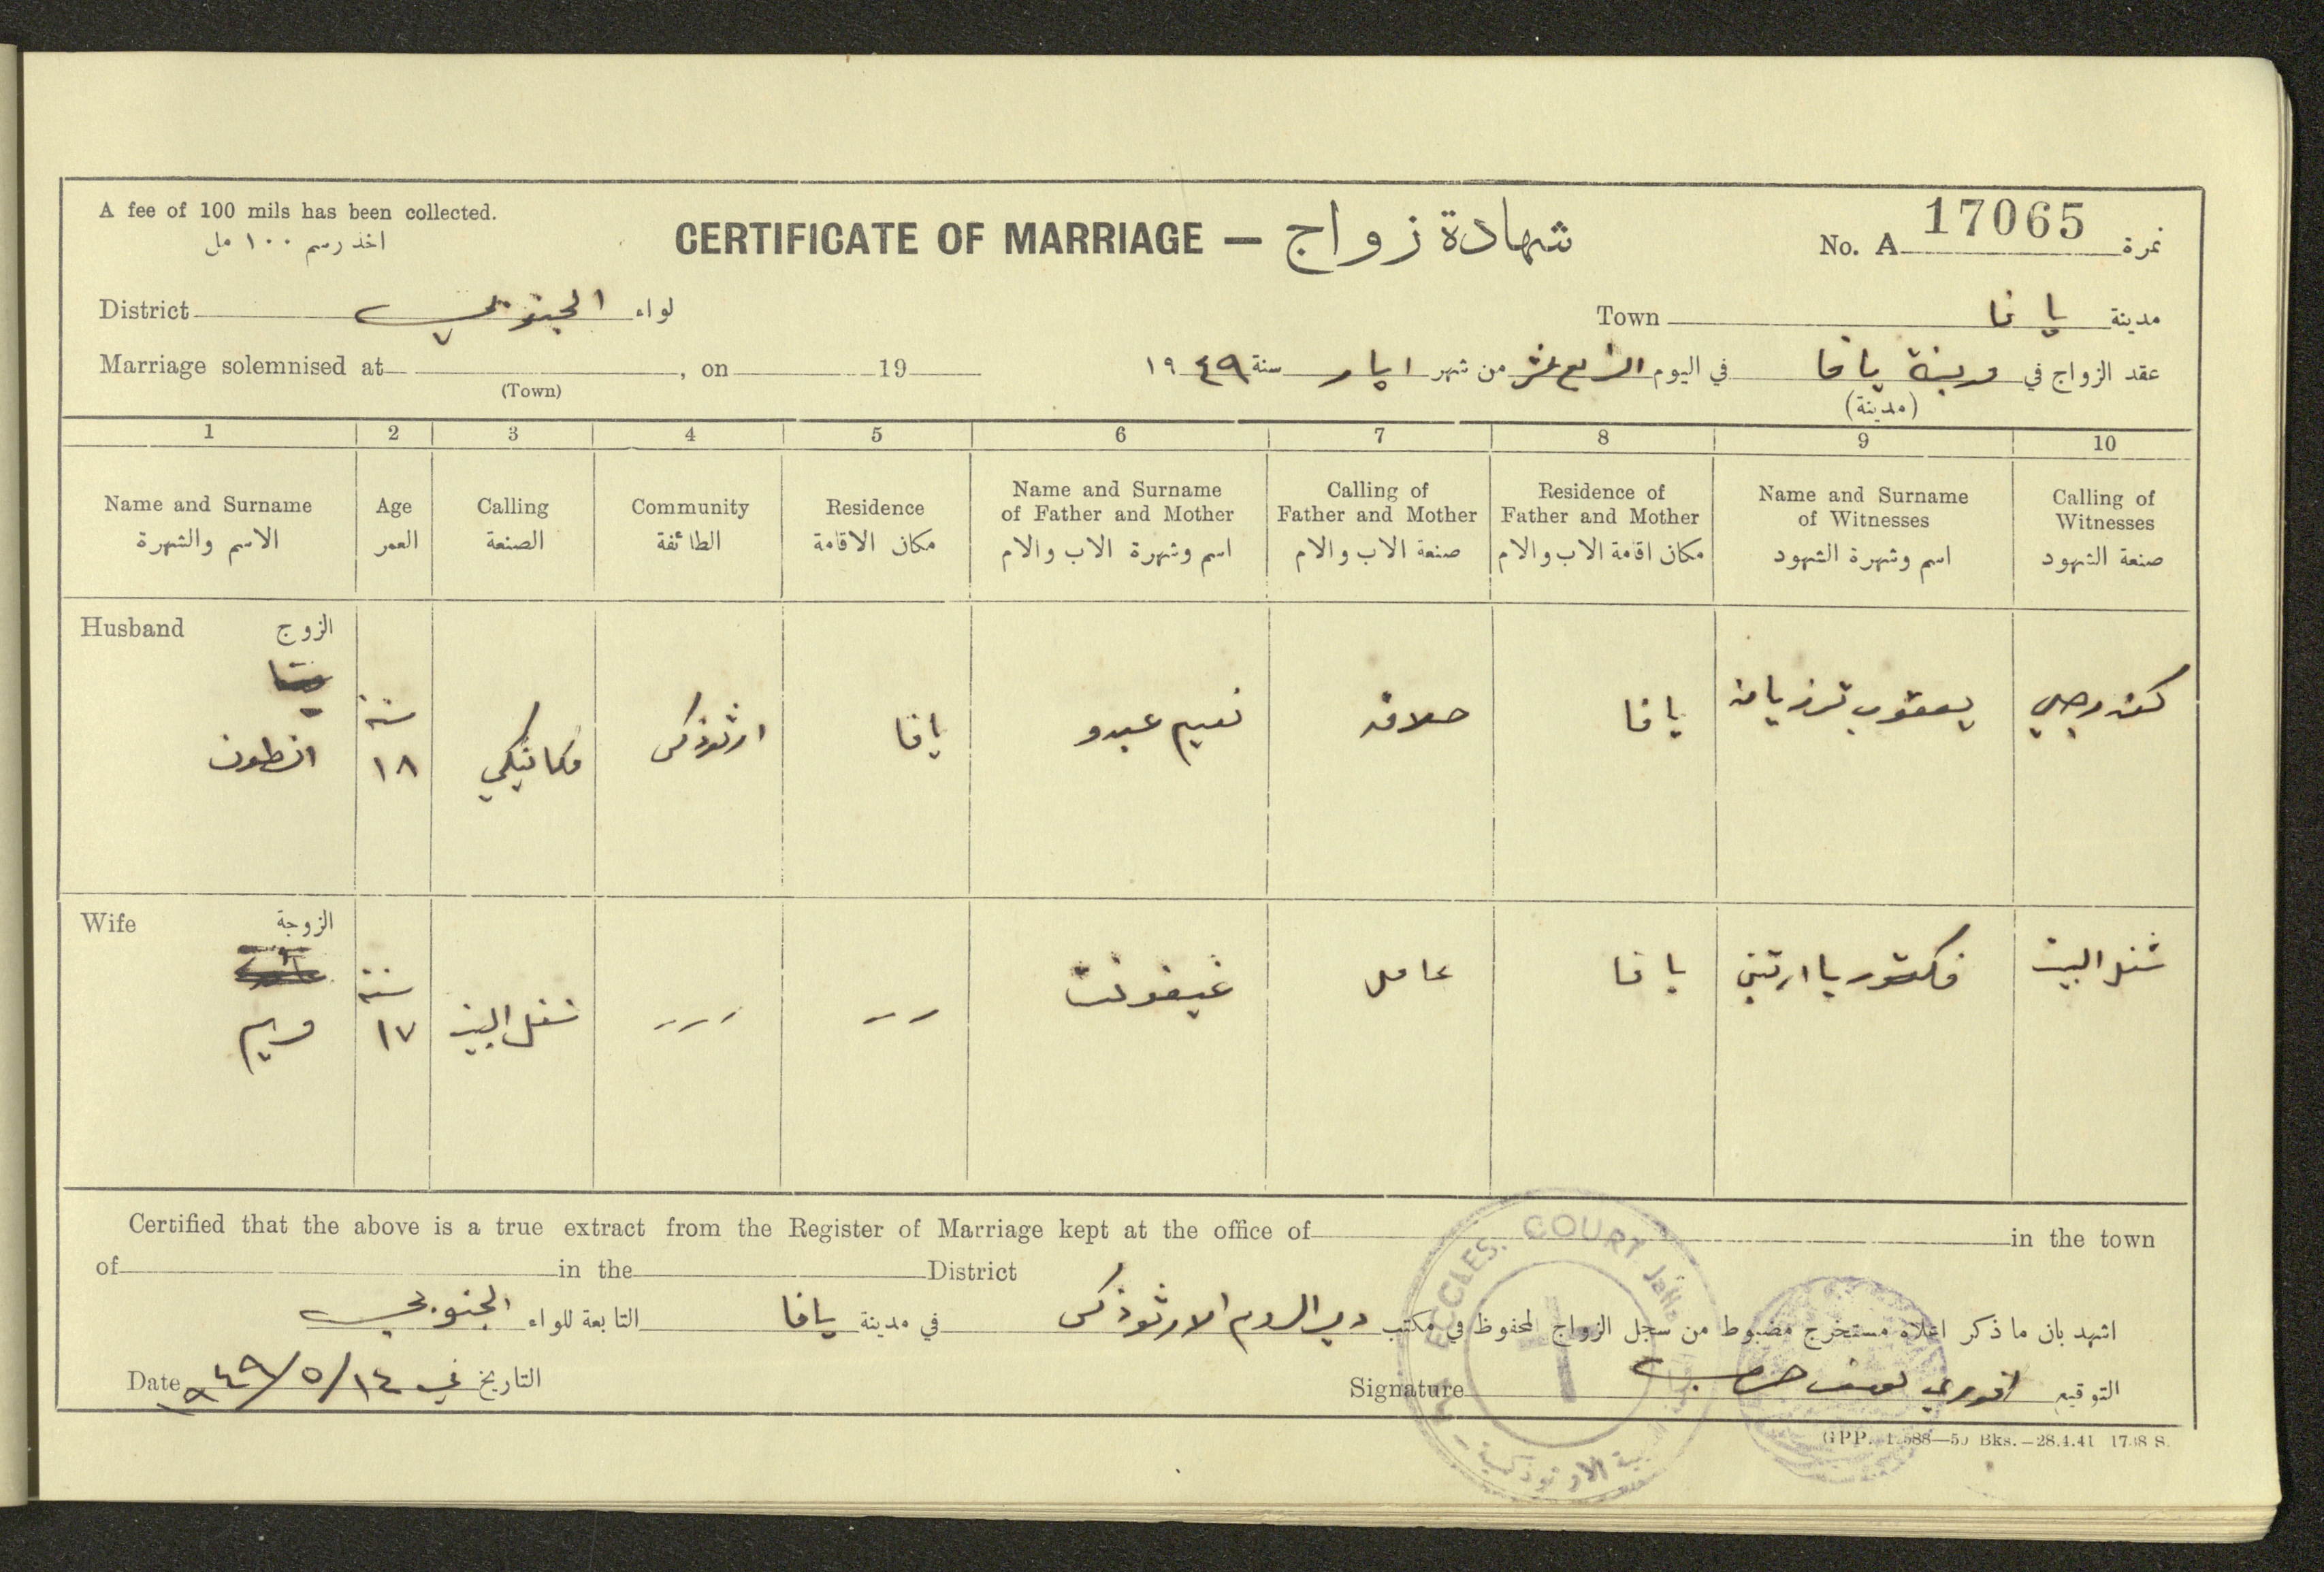 A fee of 100 mils has been collected.
اخذ رسم ١٠٠ مل
CERTIFICATE OF MARRIAGE — شهادة زواج
No. A 17065 نمرة
District الجنوبي لواء
Town يافا مدينة
Marriage solemnised at , on 19
(Town)
عقد الزواج في مدينة يافا في اليوم الرابع عشر من شهر ايار سنة ١٩٤٩
(مدينة)
1 2 3 4 5 6 7 8 9 10
Name and Surname
الاسم والشهرة
Age
العمر
Calling
الصنعة
Community
الطائفة
Residence
مكان الاقامة
Name and Surname
of Father and Mother
اسم وشهرة الاب والام
Calling of
Father and Mother
صنعة الاب والام
Residence of
Father and Mother
مكان اقامة الاب والام
Name and Surname
of Witnesses
اسم وشهرة الشهود
Calling of
Witnesses
صنعة الشهود
Husband الزوج
انطون
سنة
١٨
مكانيكي
ارثوذكسي
يافا
نعيم عبدو
حلاق
يافا
يعقوب ترزيان
كندرجي
Wife الزوجة
مريم
سنة
١٧
شغل البيت
عامل
يافا
فكتوريا ارتين
شغل البيت
Certified that the above is a true extract from the Register of Marriage kept at the office of in the town
of in the District
اشهد بان ما ذكر اعلاه مستخرج مضبوط من سجل الزواج المحفوظ في مكتب دير الروم الارثوذكس في مدينة يافا التابعة للواء الجنوبي
Date ١٩٤٩/٥/١٤ التاريخ في
Signature الخوري يوسف التوقيع
ECCLES. COURT Jaffa
الارثوذكسية
GPP. 588—50 Bks.—28.4.41